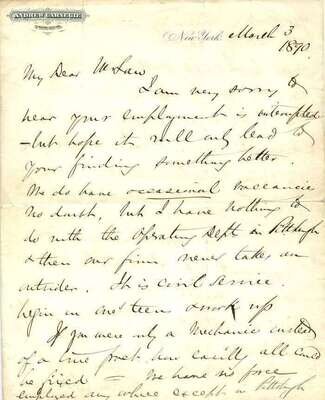 ANDREW CARNEGIE
New York, March 3
1890.
My Dear Mr Law
I am very sorry to
hear your employment is interrupted
- but hope it will only lead to
your finding something better.
We do have occasional vacancies
no doubt, but I have nothing to
do with the Operating Dept in Pittsburgh
& then our firm never takes an
outsider. It is civil service.
begin in one's teen & work up
If you were only a Mechanic instead
of a true poet how easily all could
be fixed — We have no force
employed any where except in Pittsburgh